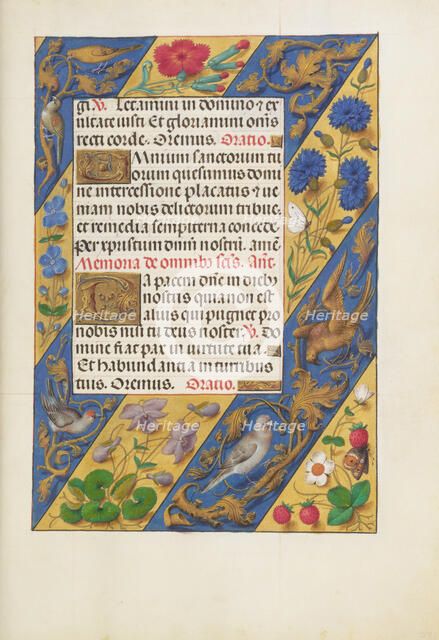 gi. V. Letamini in domino & ex
ultate iusti Et gloriamini om̄s
recti corde. Oremus. Oratio.
Omnium sanctorum tu
orum quesumus domi
ne intercessione placatus & ue
niam nobis delictorum tribue,
et remedia sempiterna concede
Per xpristum dnm nostrū. amē.
Memoria de omnibꝰ sctīs. Ant.
Da pacem dn̄e in diebꝰ
nostris quia non est
alius qui pugnet pro
nobis nisi tu deus noster. V. Do
mine fiat pax in uirtute tua.
Et habundantia in turribus
tuis. Oremus. Oratio.
Heritage
Heritage
Heritage
Heritage
Heritage
Heritage